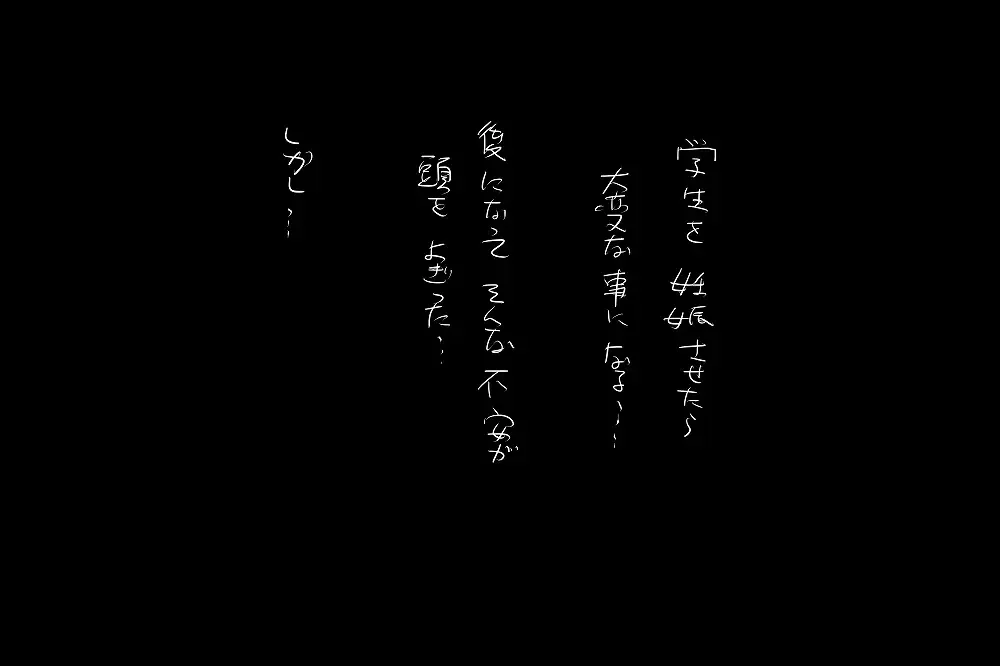 学生を妊娠させたら
大変な事になる…
後になってそんな不安が
頭をよぎった…
しかし…